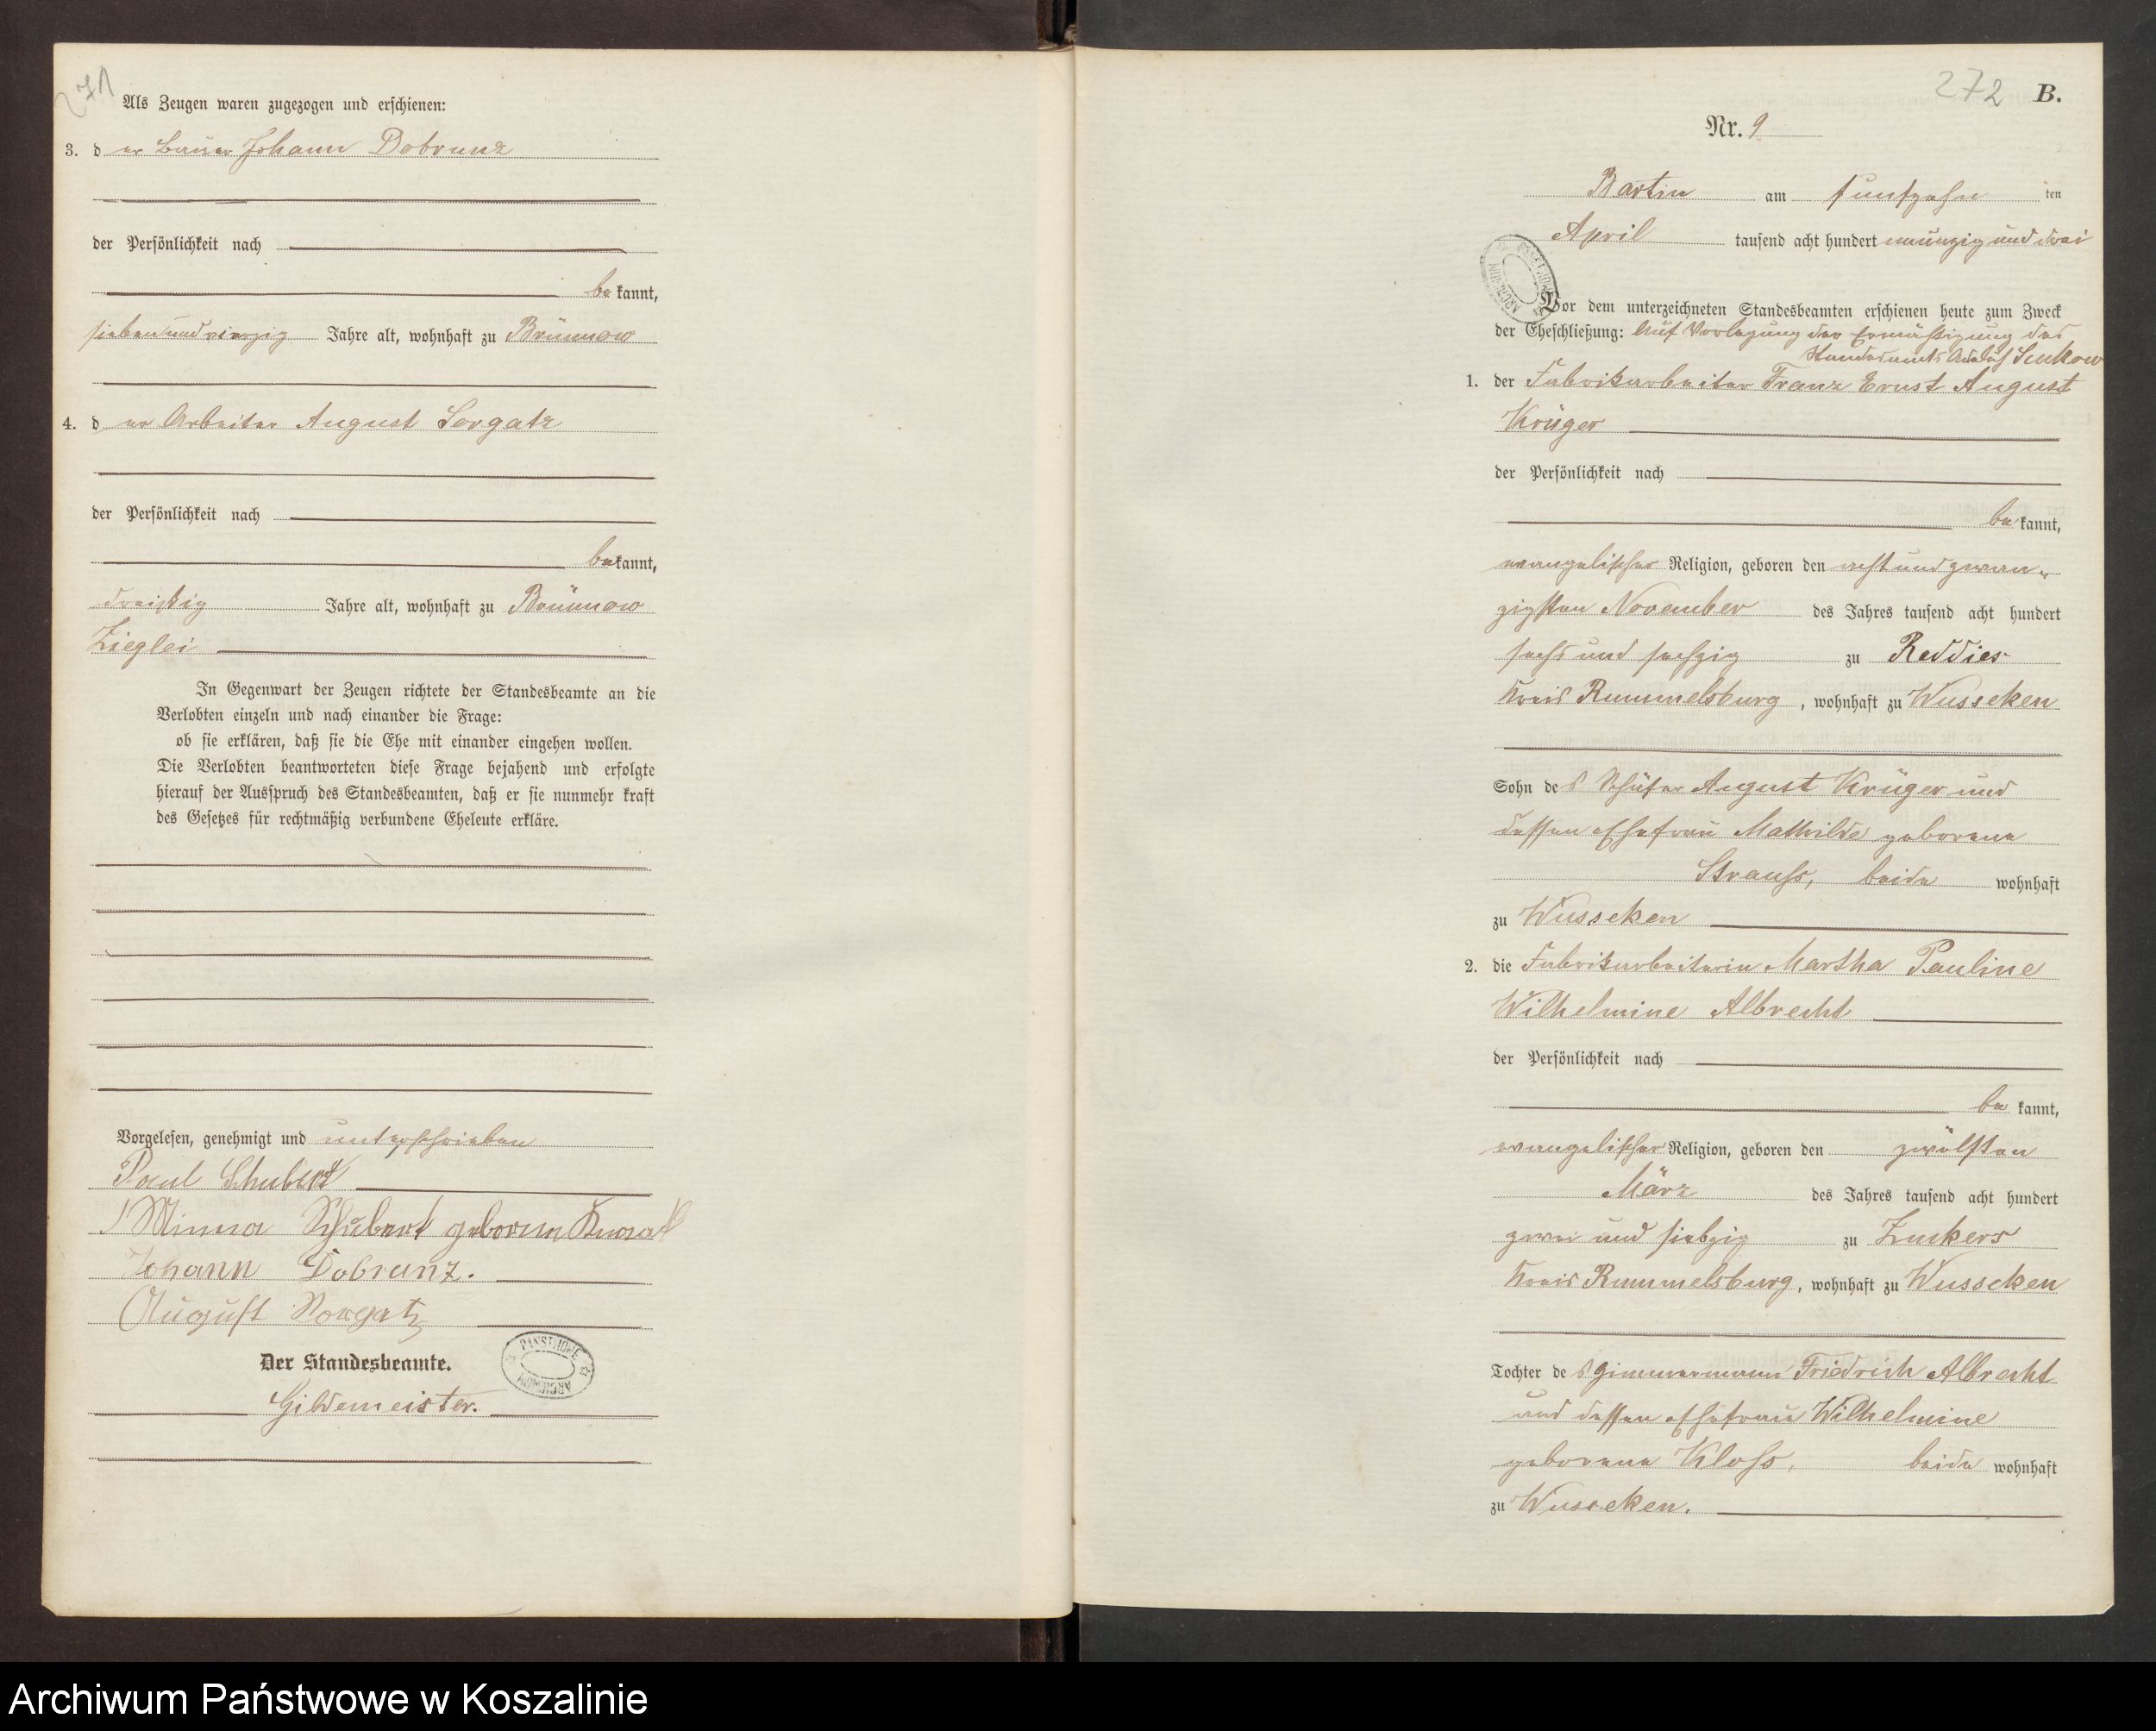 271
Als Zeugen waren zugezogen und erschienen:
3. d er Bauer Johann Dobrunz
der Persönlichkeit nach
be kannt,
siebenundvierzig Jahre alt, wohnhaft zu Brünnow
4. d er Arbeiter August Sorgatz
der Persönlichkeit nach
be kannt,
dreißig Jahre alt, wohnhaft zu Brünnow
Zieglei
In Gegenwart der Zeugen richtete der Standesbeamte an die
Verlobten einzeln und nach einander die Frage:
ob sie erklären, daß sie die Ehe mit einander eingehen wollen.
Die Verlobten beantworteten diese Frage bejahend und erfolgte
hierauf der Ausspruch des Standesbeamten, daß er sie nunmehr kraft
des Gesetzes für rechtmäßig verbundene Eheleute erkläre.
Vorgelesen, genehmigt und unterschrieben
Paul Schubert
Minna Schubert geboren
Johann Dobrunz.
August Sorgatz
Der Standesbeamte.
Gildemeister.
272 B.
Nr. 9
Bartin am funfzehn ten
April tausend acht hundert neunzig und drei
Vor dem unterzeichneten Standesbeamten erschienen heute zum Zweck
der Eheschließung: Auf Vorlegung der Ermächtigung des
Standesamts
1. der Fabrikarbeiter Franz Ernst August
Krüger
der Persönlichkeit nach
be kannt,
evangelischer Religion, geboren den acht und zwan-
zigsten November des Jahres tausend acht hundert
sechs und sechzig zu Reddies
Kreis Rummelsburg, wohnhaft zu Wusseken
Sohn de s Schäfer August Krüger und
dessen Ehefrau Mathilde geborene
Strauss, beide wohnhaft
zu Wusseken
2. die Fabrikarbeiterin Martha Pauline
Wilhelmine Albrecht
der Persönlichkeit nach
be kannt,
evangelischer Religion, geboren den zwölften
März des Jahres tausend acht hundert
zwei und siebzig zu Zuckers
Kreis Rummelsburg, wohnhaft zu Wusseken
Tochter de s Zimmermann Friedrich Albrecht
und dessen Ehefrau Wilhelmine
geborene Kloss, beide wohnhaft
zu Wusseken.
Archiwum Państwowe w Koszalinie